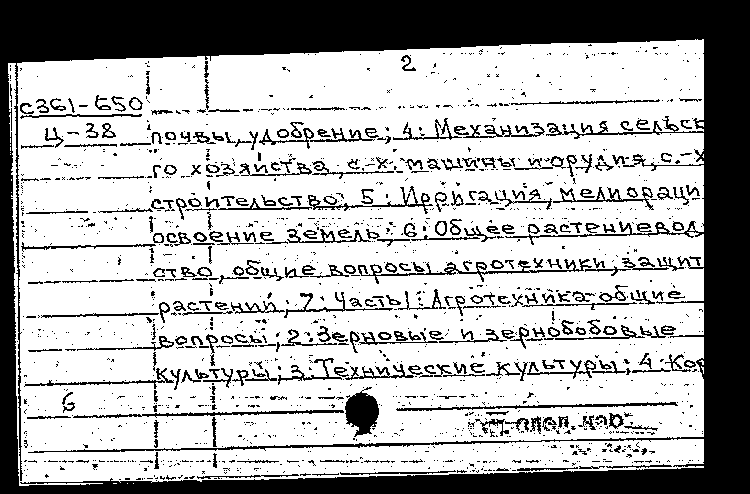 2
с361-650
Ц-38
почвы, удобрение; 4: Механизация сельск
го хозяйства, с.-х. машины и орудия, с.-х
строительство; 5: Ирригация, мелиораци
освоение земель; 6: Общее растениевод
ство, общие вопросы агротехники, защит
растений; 7: Часть 1: Агротехника, общие
вопросы; 2: Зерновые и зернобобовые
культуры; 3: Технические культуры; 4: Кор
6
след. кар.